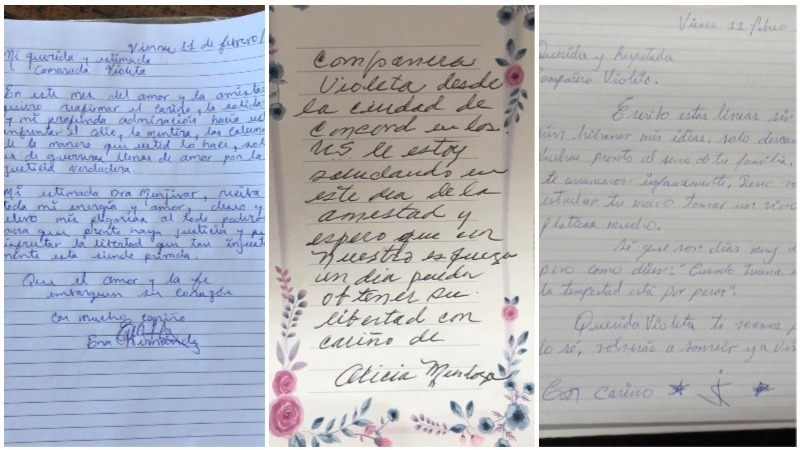 Viernes 11 de febrero/
Mi querida y estimada
Camarada Violeta
En este mes del amor y la amistad
quiero reafirmar el cariño, la solida
y mi profunda admiración hacia us
enfrentar el odio, la mentira, las calum
de la manera que usted lo hace, sol
as de guerreras llenas de amor por la
justicia verdadera.
Mi estimada Dra Menjivar, reciba
toda mi energía y amor, deseo y
elevo mis plegarias al todo poderos
para que pronto haya justicia y pu
disfrutar la libertad que tan injust
mente esta siendo privada.
Que el amor y la fe
embarguen su corazón
Con mucho cariño
Hernández
Compañera
Violeta desde
la ciudad de
Concord en los
U.S. le estoy
saludando en
este dia de la
amestad y
espero que en
nuestro esfuerzo
un dia pueda
obtener su
libertad con
cariño de
Alicia Mendoza
Viernes 11 febrero
Querida y Respetada
Compañera Violeta.
Escribo estas líneas sin
aún hilvanar mis ideas, solo desean
vuelvas pronto al seno de tu familia.
te arrancaron infamemente. Quiero
estrechar tu mano tomar un
platicar mucho.
Sé que son días muy
pero como dicen: "Cuando truena
la tempestad está por pasar".
Querida Violeta te vemos
lo sé, volverás a sonreír y a
Con cariño